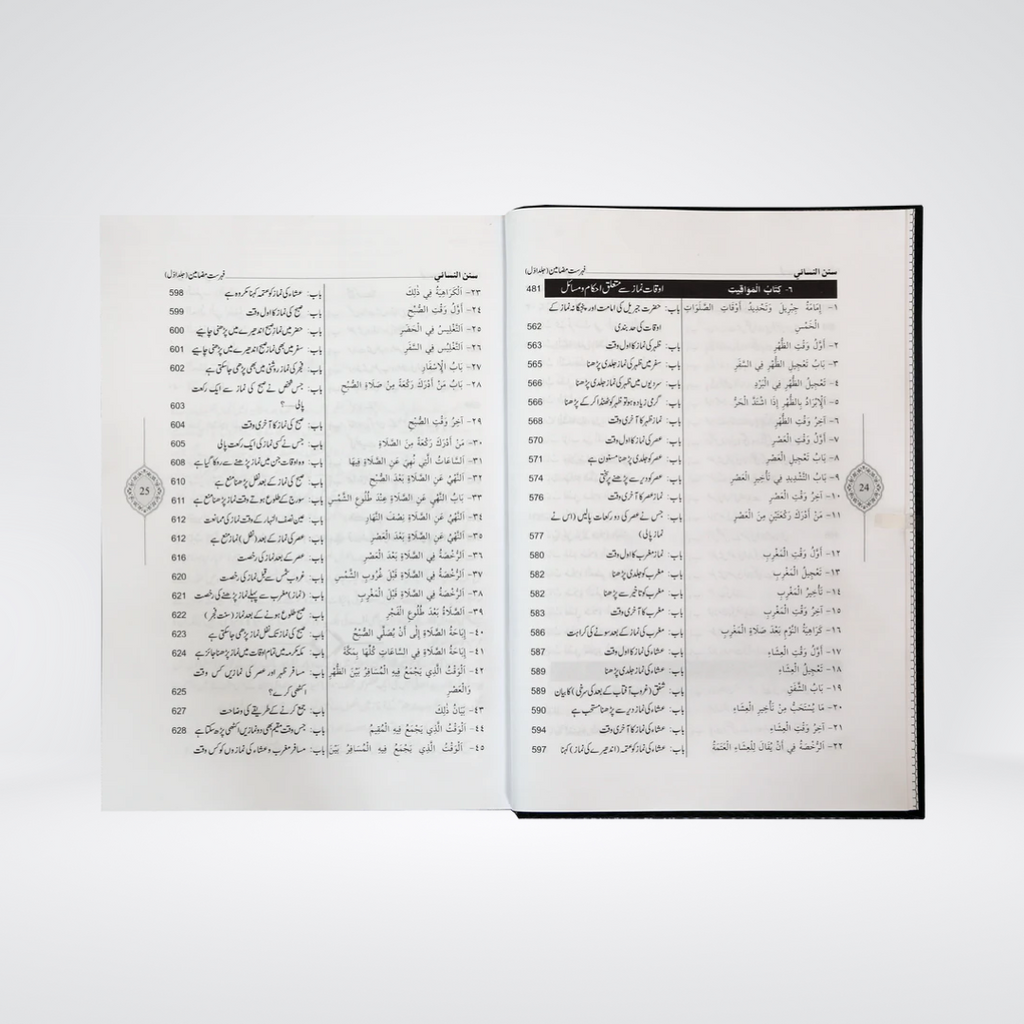 سنن النسائي فہرست مضامین (جلد اوّل)
٦- كتاب المواقيت اوقات نماز سے متعلق احکام و مسائل 481
١- إِمَامَةُ جِبْرِيلَ وَتَحْدِيدُ أَوْقَاتِ الصَّلَوَاتِ باب: حضرت جبریل کی امامت اور پنجگانہ نماز کے
الْخَمْسِ اوقات کی حد بندی 562
٢- أَوَّلُ وَقْتِ الظُّهْرِ باب: ظہر کی نماز کا اول وقت 563
٣- بَابُ تَعْجِيلِ الظُّهْرِ فِي السَّفَرِ باب: سفر میں ظہر کی نماز جلدی پڑھنا 565
٤- تَعْجِيلُ الظُّهْرِ فِي الْبَرْدِ باب: سردیوں میں ظہر کی نماز جلدی پڑھنا 566
٥- اَلْإِبْرَادُ بِالظُّهْرِ إِذَا اشْتَدَّ الْحَرُّ باب: گرمی زیادہ ہو تو ظہر کو ٹھنڈا کر کے پڑھنا 566
٦- آخِرُ وَقْتِ الظُّهْرِ باب: نماز ظہر کا آخری وقت 568
٧- أَوَّلُ وَقْتِ الْعَصْرِ باب: عصر کی نماز کا اول وقت 570
٨- بَابُ تَعْجِيلِ الْعَصْرِ باب: عصر کو جلدی پڑھنا مسنون ہے 571
٩- بَابُ التَّشْدِيدِ فِي تَأْخِيرِ الْعَصْرِ باب: عصر کو دیر سے پڑھنے پر سختی 574
١٠- آخِرُ وَقْتِ الْعَصْرِ باب: نماز عصر کا آخری وقت 576
١١- مَنْ أَدْرَكَ رَكْعَتَيْنِ مِنَ الْعَصْرِ باب: جس نے عصر کی دو رکعات پالیں (اس نے
نماز پالی) 577
١٢- أَوَّلُ وَقْتِ الْمَغْرِبِ باب: نماز مغرب کا اول وقت 580
١٣- تَعْجِيلُ الْمَغْرِبِ باب: مغرب کو جلدی پڑھنا 582
١٤- تَأْخِيرُ الْمَغْرِبِ باب: مغرب کو تاخیر سے پڑھنا 582
١٥- آخِرُ وَقْتِ الْمَغْرِبِ باب: مغرب کا آخری وقت 583
١٦- كَرَاهِيَةُ النَّوْمِ بَعْدَ صَلَاةِ الْمَغْرِبِ باب: مغرب کی نماز کے بعد سونے کی کراہت 586
١٧- أَوَّلُ وَقْتِ الْعِشَاءِ باب: عشاء کی نماز کا اول وقت 587
١٨- تَعْجِيلُ الْعِشَاءِ باب: عشاء کی نماز جلدی پڑھنا 589
١٩- بَابُ الشَّفَقِ باب: شفق (غروب آفتاب کے بعد کی سرخی) کا بیان 589
٢٠- مَا يُسْتَحَبُّ مِنْ تَأْخِيرِ الْعِشَاءِ باب: عشاء کی نماز دیر سے پڑھنا مستحب ہے 590
٢١- آخِرُ وَقْتِ الْعِشَاءِ باب: عشاء کی نماز کا آخری وقت 594
٢٢- اَلرُّخْصَةُ فِي أَنْ يُقَالَ لِلْعِشَاءِ الْعَتَمَةُ باب: عشاء کی نماز کو عتمہ (اندھیرے کی نماز) کہنا 597
24
سنن النسائي فہرست مضامین (جلد اوّل)
٢٣- اَلْكَرَاهِيَةُ فِي ذٰلِكَ باب: عشاء کی نماز کو عتمہ کہنا مکروہ ہے 598
٢٤- أَوَّلُ وَقْتِ الصُّبْحِ باب: صبح کی نماز کا اول وقت 599
٢٥- اَلتَّغْلِيسُ فِي الْحَضَرِ باب: حضر میں نماز صبح اندھیرے میں پڑھنی چاہیے 600
٢٦- اَلتَّغْلِيسُ فِي السَّفَرِ باب: سفر میں بھی نماز صبح اندھیرے میں پڑھنی چاہیے 601
٢٧- بَابُ الْإِسْفَارِ باب: فجر کی نماز روشنی میں بھی پڑھی جاسکتی ہے 602
٢٨- بَابُ مَنْ أَدْرَكَ رَكْعَةً مِنْ صَلَاةِ الصُّبْحِ باب: جس شخص نے صبح کی نماز سے ایک رکعت
پالی.....؟ 603
٢٩- آخِرُ وَقْتِ الصُّبْحِ باب: صبح کی نماز کا آخری وقت 604
٣٠- مَنْ أَدْرَكَ رَكْعَةً مِنَ الصَّلَاةِ باب: جس نے کسی نماز کی ایک رکعت پالی 605
٣١- اَلسَّاعَاتُ الَّتِي نُهِيَ عَنِ الصَّلَاةِ فِيهَا باب: وہ اوقات جن میں نماز پڑھنے سے روکا گیا ہے 608
٣٢- اَلنَّهْيُ عَنِ الصَّلَاةِ بَعْدَ الصُّبْحِ باب: صبح کی نماز کے بعد نفل پڑھنا منع ہے 610
٣٣- بَابُ النَّهْيِ عَنِ الصَّلَاةِ عِنْدَ طُلُوعِ الشَّمْسِ باب: سورج کے طلوع ہوتے وقت نماز پڑھنا منع ہے 611
٣٤- اَلنَّهْيُ عَنِ الصَّلَاةِ نِصْفَ النَّهَارِ باب: عین نصف النہار کے وقت نماز کی ممانعت 612
٣٥- اَلنَّهْيُ عَنِ الصَّلَاةِ بَعْدَ الْعَصْرِ باب: عصر کی نماز کے بعد (نفل) نماز منع ہے 612
٣٦- اَلرُّخْصَةُ فِي الصَّلَاةِ بَعْدَ الْعَصْرِ باب: عصر کے بعد نماز کی رخصت 616
٣٧- اَلرُّخْصَةُ فِي الصَّلَاةِ قَبْلَ غُرُوبِ الشَّمْسِ باب: غروب شمس سے قبل نماز کی رخصت 620
٣٨- اَلرُّخْصَةُ فِي الصَّلَاةِ قَبْلَ الْمَغْرِبِ باب: (نماز) مغرب سے پہلے نماز پڑھنے کی رخصت 621
٣٩- اَلصَّلَاةُ بَعْدَ طُلُوعِ الْفَجْرِ باب: صبح طلوع ہونے کے بعد نماز (سنت فجر) 622
٤٠- إِبَاحَةُ الصَّلَاةِ إِلَى أَنْ يُصَلِّيَ الصُّبْحَ باب: صبح کی نماز تک نفل نماز پڑھی جاسکتی ہے 623
٤١- إِبَاحَةُ الصَّلَاةِ فِي السَّاعَاتِ كُلِّهَا بِمَكَّةَ باب: مکہ مکرمہ میں تمام اوقات میں نماز پڑھنا جائز ہے 624
٤٢- اَلْوَقْتُ الَّذِي يَجْمَعُ فِيهِ الْمُسَافِرُ بَيْنَ الظُّهْرِ باب: مسافر ظہر اور عصر کی نمازیں کس وقت
وَالْعَصْرِ اکٹھی کرے؟ 625
٤٣- بَيَانُ ذٰلِكَ باب: جمع کرنے کے طریقے کی وضاحت 627
٤٤- اَلْوَقْتُ الَّذِي يَجْمَعُ فِيهِ الْمُقِيمُ باب: جس وقت مقیم بھی دو نمازیں اکٹھی پڑھ سکتا ہے 628
٤٥- اَلْوَقْتُ الَّذِي يَجْمَعُ فِيهِ الْمُسَافِرُ بَيْنَ باب: مسافر مغرب و عشاء کی نمازوں کو کس وقت
25